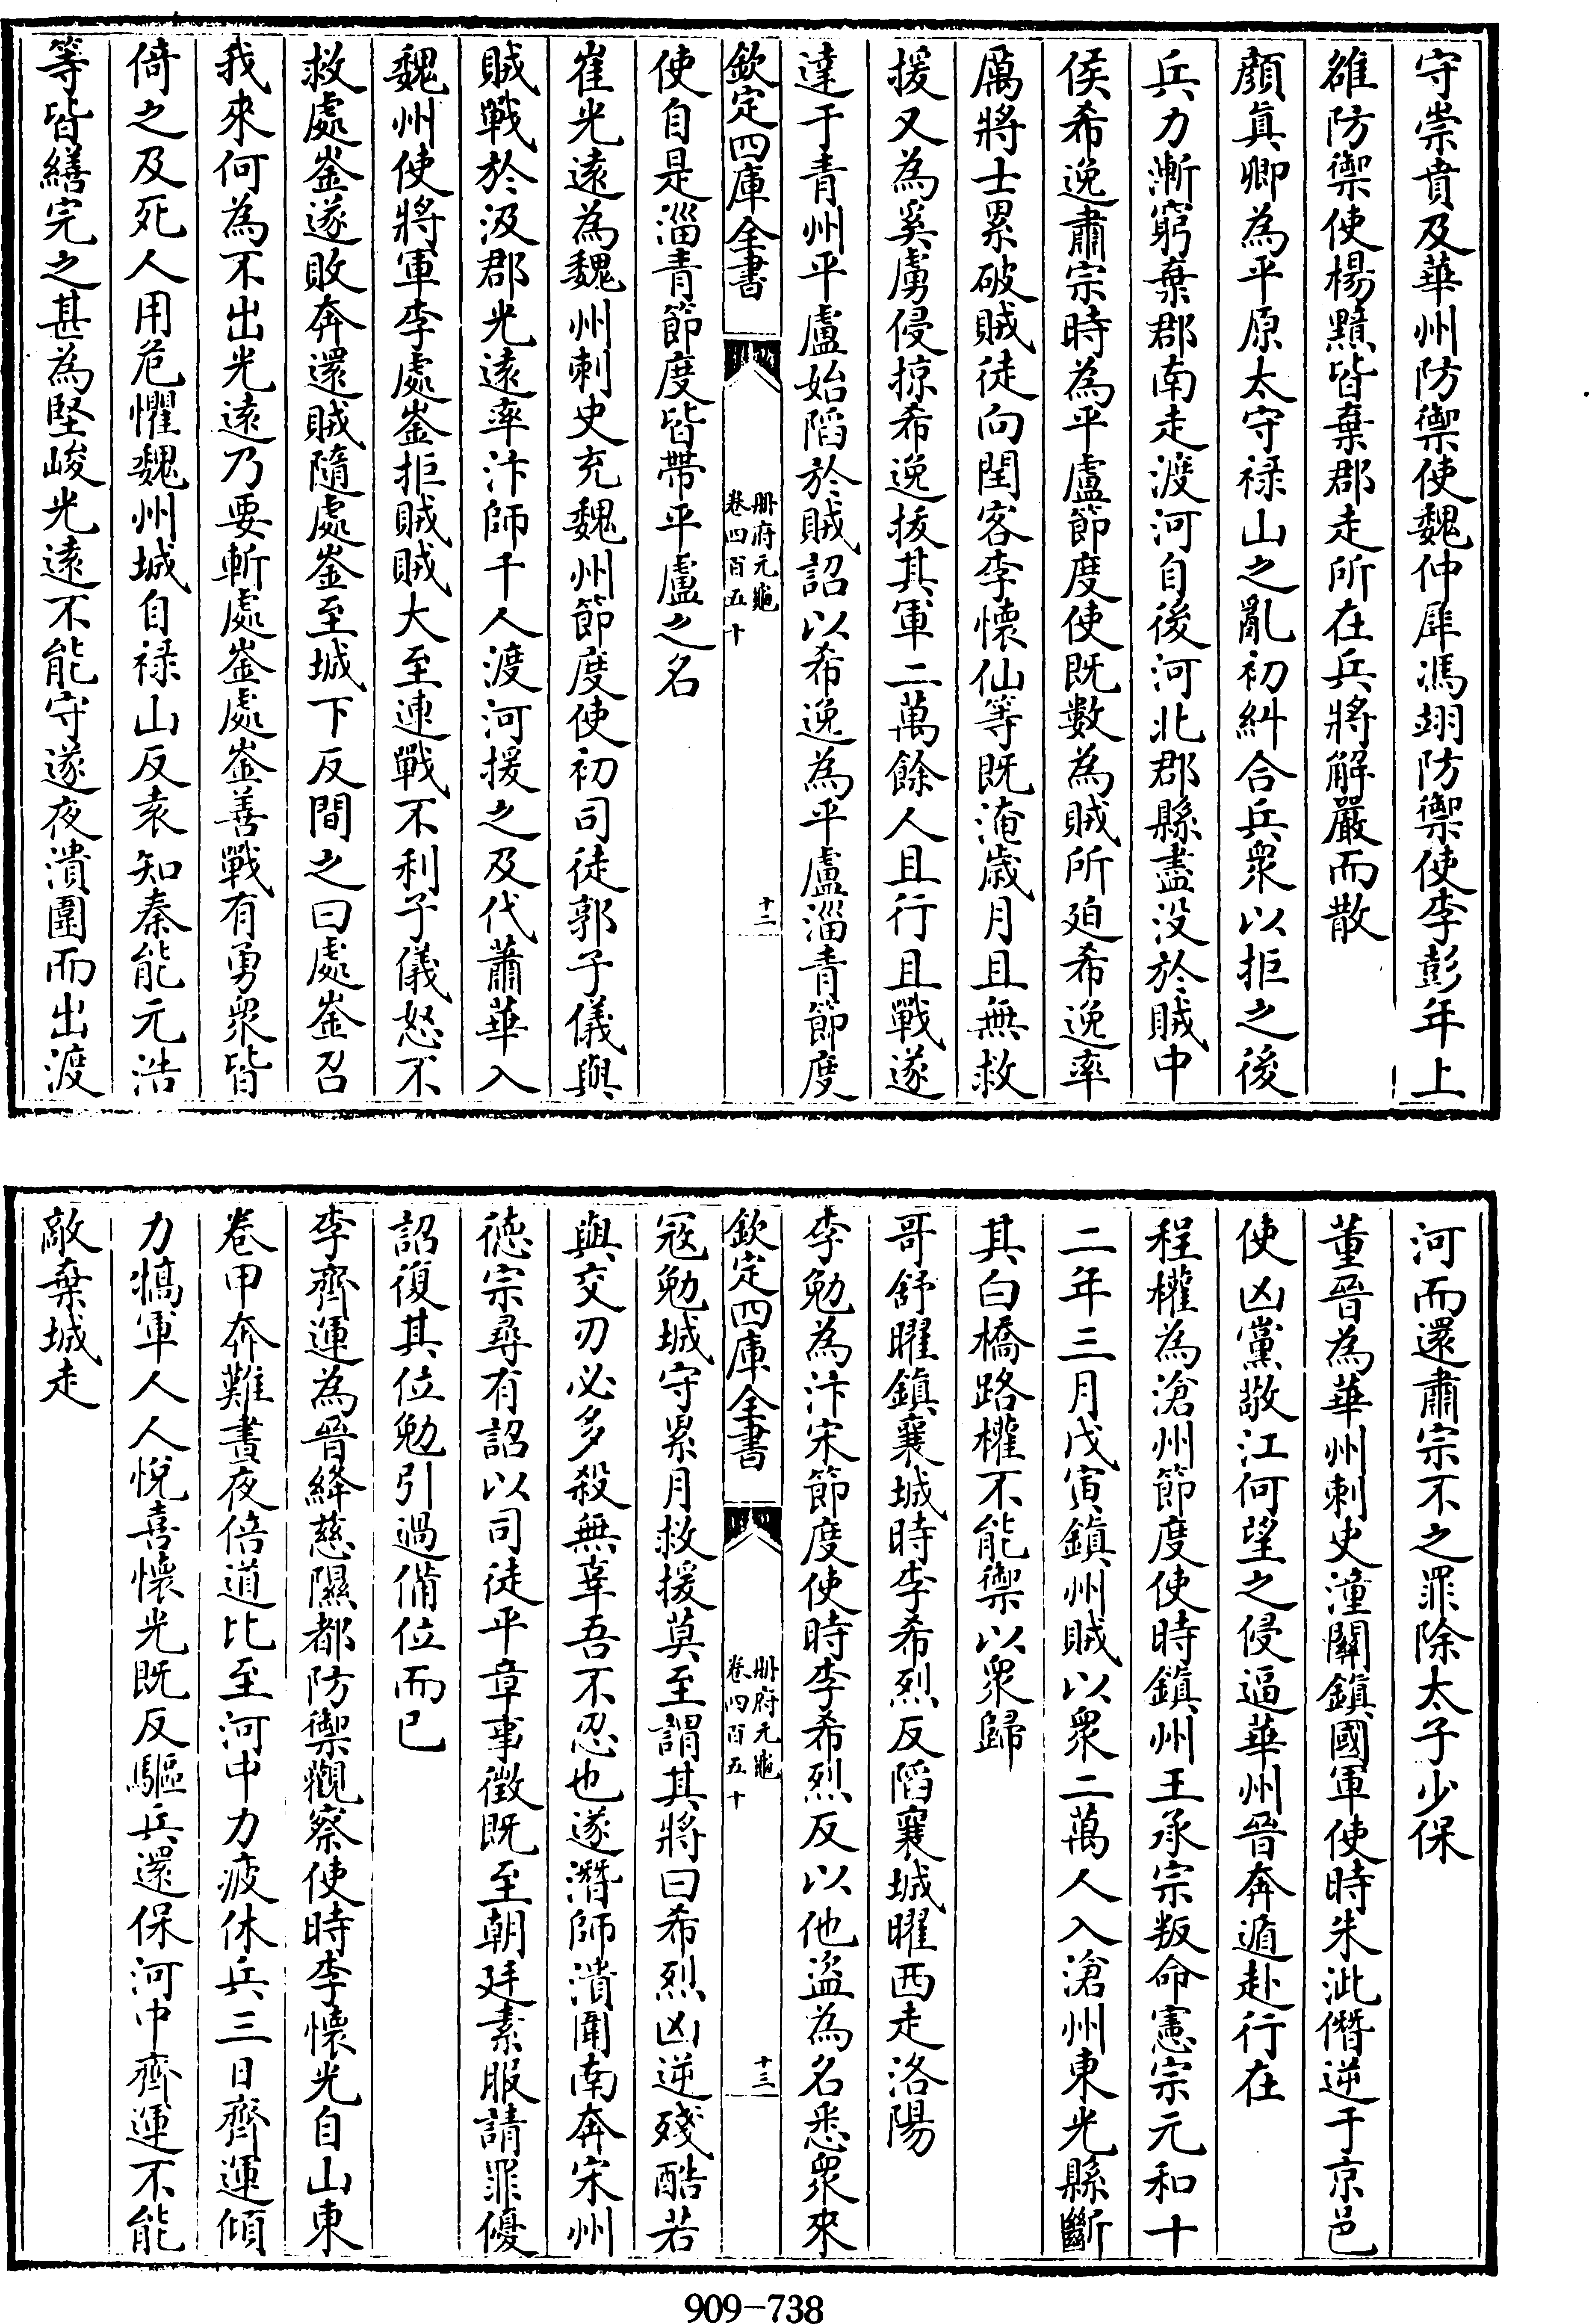 守崇賁及華州防禦使魏仲犀馮翊防禦使李彭年上
雒防禦使楊黯皆棄郡走所在兵將解嚴而散
顔真卿為平原太守禄山之亂初糾合兵衆以拒之後
兵力漸窮棄郡南走渡河自後河北郡縣盡没於賊中
侯希逸肅宗時為平盧節度使既數為賊所廹希逸率
厲將士累破賊徒向閏客李懷仙等既淹歳月且無救
援又為奚虜侵掠希逸拔其軍二萬餘人且行且戰遂
達于青州平盧始䧟於賊詔以希逸為平盧淄青節度
欽定四庫全書
册府元龜
卷四百五十
十二
使自是淄青節度皆帶平盧之名
崔光遠為魏州刺史充魏州節度使初司徒郭子儀與
賊戰於汲郡光遠率汴師千人渡河援之及代蕭華入
魏州使將軍李處崟拒賊賊大至連戰不利子儀怒不
救處崟遂敗奔還賊隨處崟至城下反間之曰處崟召
我來何為不出光遠乃要斬處崟處崟善戰有勇衆皆
倚之及死人用危懼魏州城自禄山反袁知泰能元浩
等皆繕完之甚為堅峻光遠不能守遂夜潰圍而出渡
河而還肅宗不之罪除太子少保
董晉為華州刺史潼關鎮國軍使時朱泚僭逆于京邑
使凶黨敬江何望之侵逼華州晉奔遁赴行在
程權為滄州節度使時鎮州王承宗叛命憲宗元和十
二年三月戊寅鎮州賊以衆二萬人入滄州東光縣斷
其白橋路權不能禦以衆歸
哥舒曜鎮襄城時李希烈反䧟襄城曜西走洛陽
李勉為汴宋節度使時李希烈反以他盗為名悉衆來
欽定四庫全書
册府元龜
卷四百五十
十三
冦勉城守累月救援莫至謂其將曰希烈凶逆殘酷若
與交刃必多殺無辜吾不忍也遂潛師潰圍南奔宋州
徳宗尋有詔以司徒平章事徴既至朝廷素服請罪優
詔復其位勉引過備位而已
李齊運為晉絳慈隰都防禦觀察使時李懷光自山東
卷甲奔難晝夜倍道比至河中力疲休兵三日齊運傾
力犒軍人人悦喜懷光既反驅兵還保河中齊運不能
敵棄城走
909-738